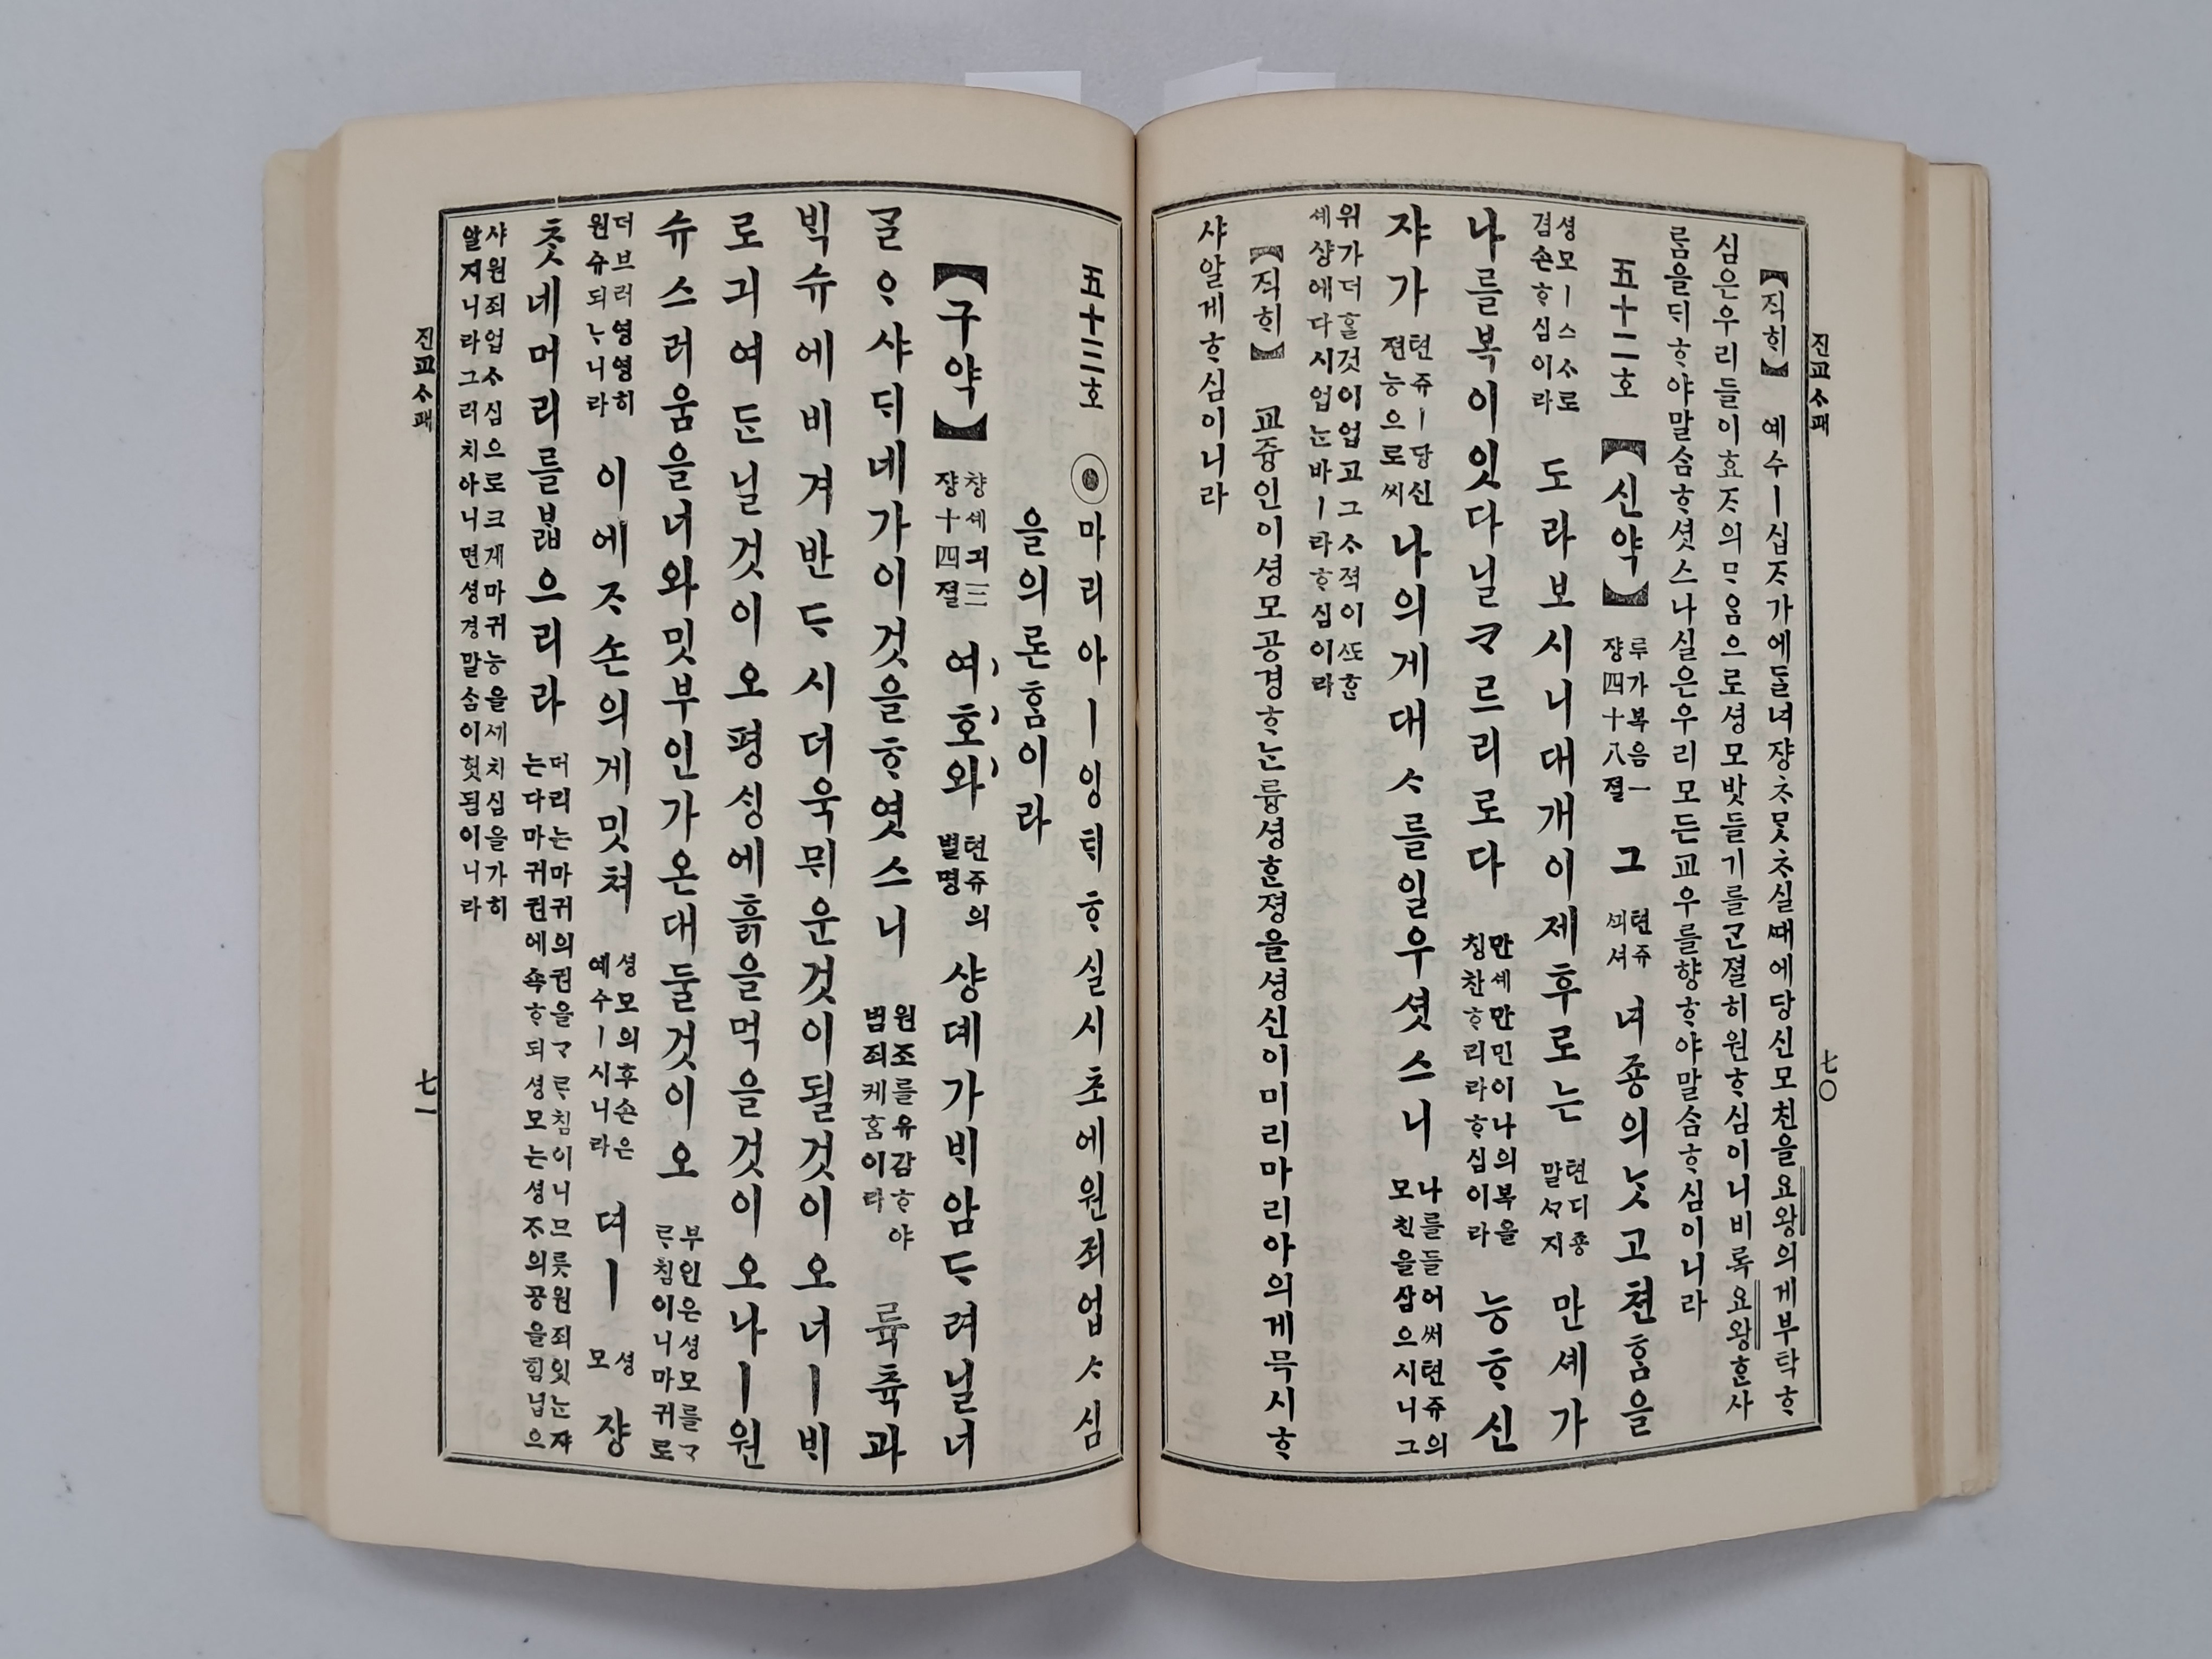 진교ᄉᆞ패
七〇
【직ᄒᆡ】 예수ㅣ십ᄌᆞ가에ᄃᆞᆯ녀쟝ᄎᆞᆺᄆᆞᆺᄎᆞ실ᄯᅢ에당신모친을요왕의게부탁ᄒᆞ
심은우리들이효ᄌᆞ의ᄆᆞ음으로셩모밧들기를ᄀᆞᆫ졀히원ᄒᆞ심이니비록요왕ᄒᆞᆫ사
ᄅᆞᆷ을ᄃᆡᄒᆞ야말ᄉᆞᆷᄒᆞ셧스나실은우리모든교우를향ᄒᆞ야말ᄉᆞᆷᄒᆞ심이니라
五十二호 【신약】 루가복음一쟝四十八졀 그 텬쥬ᄭᅴ셔 녀죵의ᄂᆞᆺ고쳔ᄒᆞᆷ을
셩모ㅣ스ᄉᆞ로겸손ᄒᆞ심이라 도라보시니대개이제후로ᄂᆞᆫ 텬디죵말ᄭᆞ지 만셰가
나를복이잇다닐ᄏᆞ르리로다 만셰만민이나의복을칭찬ᄒᆞ리라ᄒᆞ심이라 능ᄒᆞ신
쟈가 텬쥬ㅣ당신젼능으로써 나의게대ᄉᆞ를일우셧스니 나를들어써텬쥬의모친을삼으시니그
위가더ᄒᆞᆯ것이업고그ᄉᆞ젹이ᄯᅩᄒᆞᆫ
세샹에다시업ᄂᆞᆫ바ㅣ라ᄒᆞ심이라
【직ᄒᆡ】 교즁인이셩모공경ᄒᆞᄂᆞᆫ륭셩ᄒᆞᆫ졍을셩신이미리마리아의게믁시ᄒᆞ
샤알게ᄒᆞ심이니라
五十三호 ◉마리아ㅣ잉ᄐᆡᄒᆞ실시초에원죄업ᄉᆞ심
을의론ᄒᆞᆷ이라
【구약】 챵셰긔三쟝十四졀 여호와 텬쥬의별명 샹뎨가ᄇᆡ암ᄃᆞ려닐너
ᄀᆞᆯᄋᆞ샤ᄃᆡ네가이것을ᄒᆞ엿스니 원조를유감ᄒᆞ야범죄케ᄒᆞᆷ이라 륙츅과
ᄇᆡᆨ슈에비겨반ᄃᆞ시더욱뮈운것이될것이오너ㅣᄇᆡ
로긔여ᄃᆞᆫ닐것이오평ᄉᆡᆼ에흙을먹을것이오나ㅣ원
슈스러움을너와밋부인가온대둘것이오 부인은셩모를ᄀᆞᄅᆞ침이니마귀로
더브러영영히원슈되ᄂᆞ니라 이에ᄌᆞ손의게밋쳐 셩모의후손은예수ㅣ시니라 뎌ㅣ 셩모 쟝
ᄎᆞᆺ네머리를ᄇᆞᆲ으리라 머리는마귀의권을ᄀᆞᄅᆞ침이니므릇원죄잇ᄂᆞᆫ쟈는다마귀권에쇽ᄒᆞ되셩모는셩ᄌᆞ의공을힘닙으
샤원죄업ᄉᆞ심으로크게마귀능을세치심을가히
알지니라그러치아니면셩경말ᄉᆞᆷ이헛됨이니라
진교ᄉᆞ패
七一